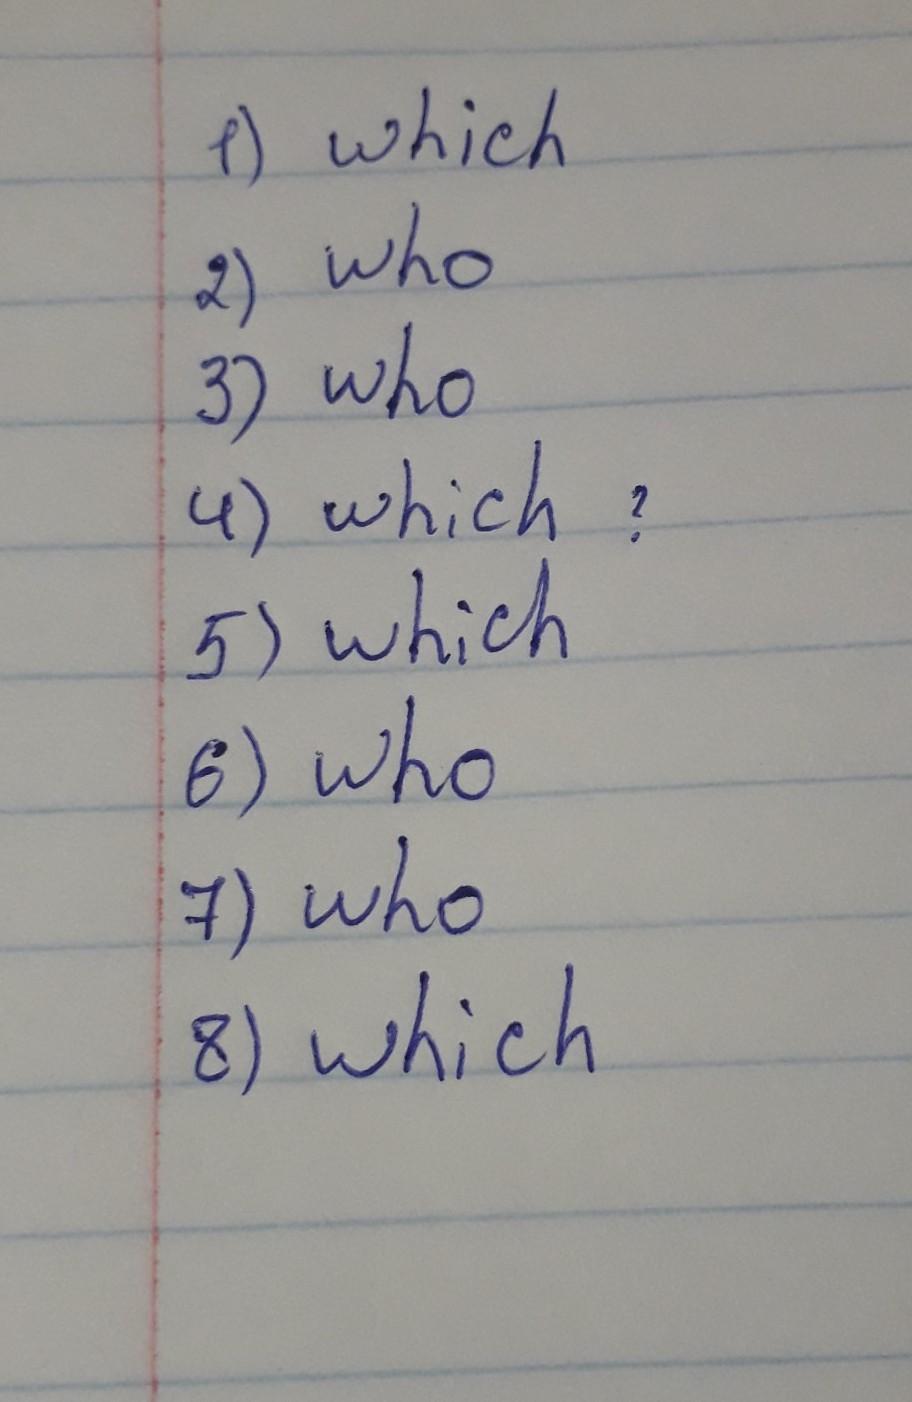 1) which
2) who
3) who
4) which ?
5) which
6) who
7) who
8) which